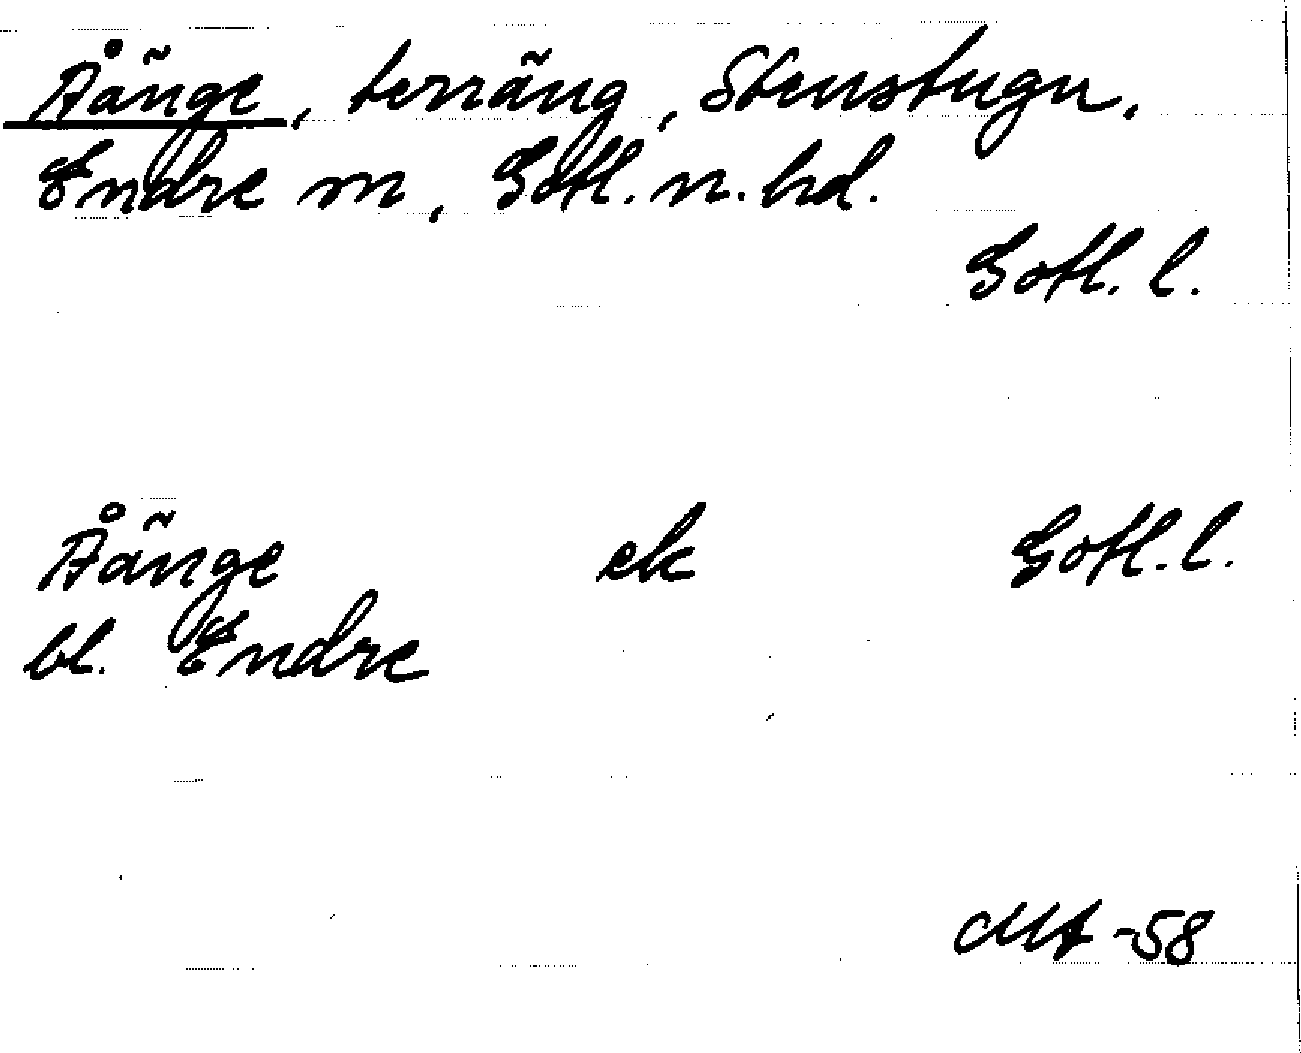 Åänge, terräng, Stenstugu,
Endre sn, Gotl. n. hd.
Gotl. l.
Åänge ek Gotl. l.
bl. Endre
MA -58